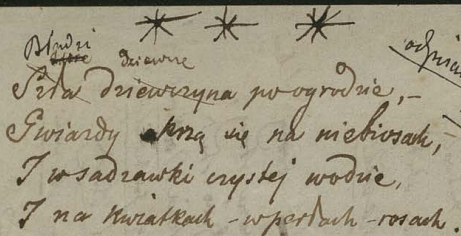 * * *
Błądzi dziewczę
Szła dziewczyna po ogrodzie, –
Gwiazdy skrzą się na niebiosach,
I w sadzawki czystej wodzie,
I na kwiatkach – w perłach – rosach.